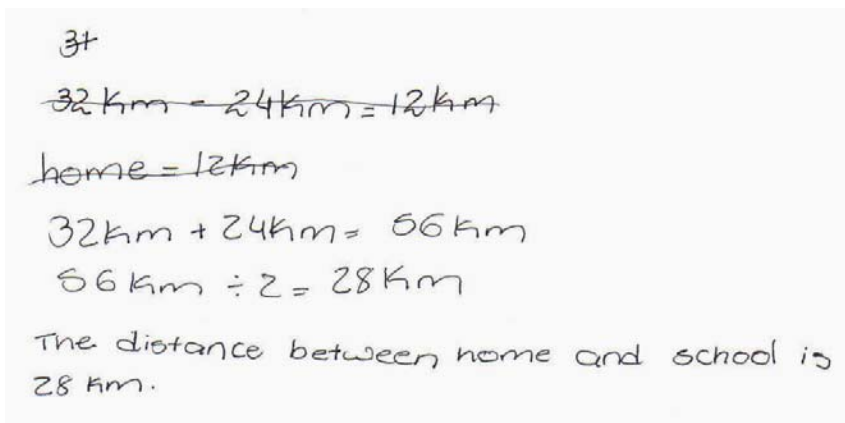 3+
32 Km - 24Km = 12Km
home = 12Km
32Km + 24Km = 56 Km
56 Km ÷ 2 = 28 Km
The distance between home and school is
28 Km.